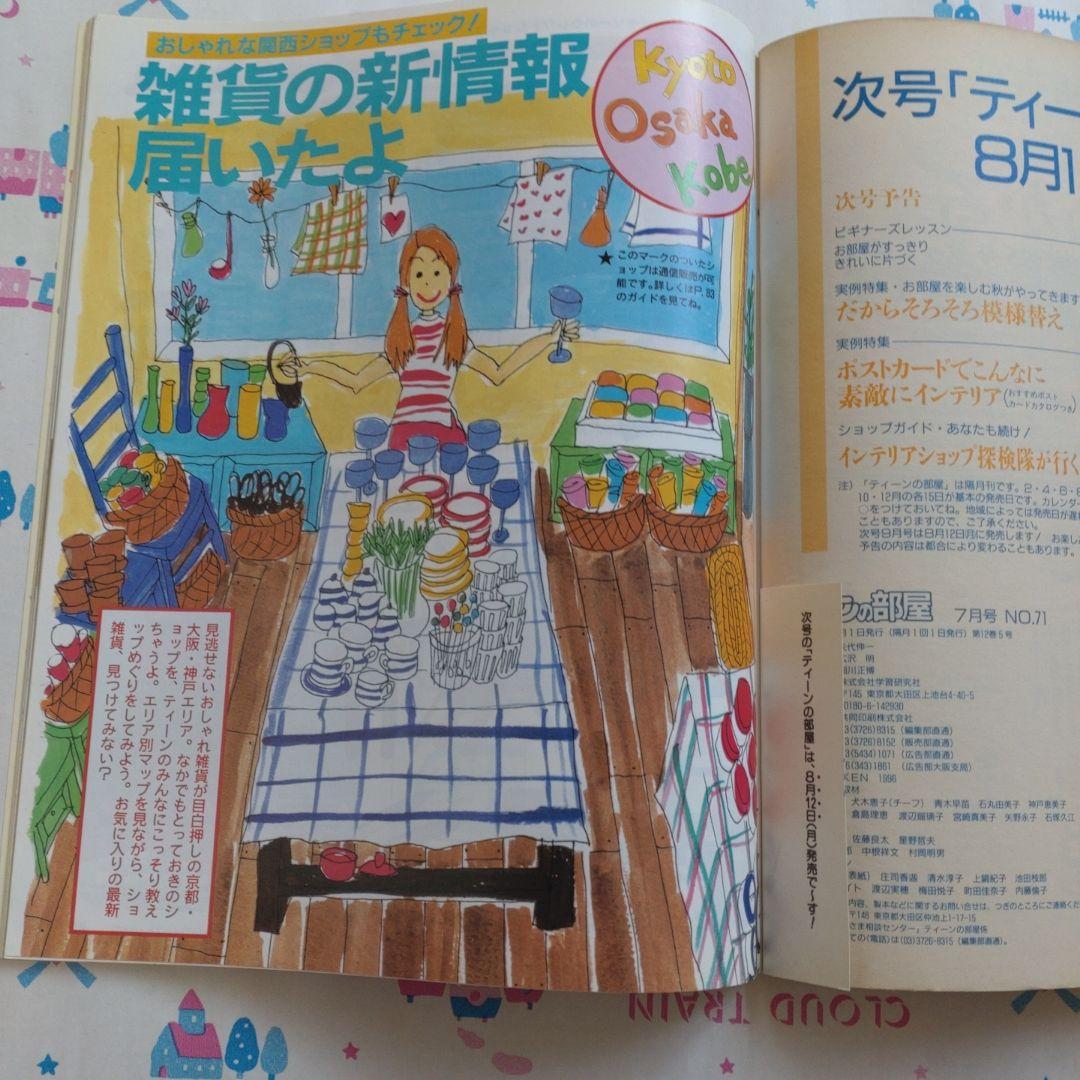 おしゃれな関西ショップもチェック！
雑貨の新情報
届いたよ
Kyoto
Osaka
Kobe
★このマークのついたシ
ョップは通信販売が可
能です。詳しくはP.83
のガイドを見てね。
見逃せないおしゃれ雑貨が目白押しの京都・
大阪・神戸エリア。なかでもとっておきのシ
ョップを、ティーンのみんなにこっそり教え
ちゃうよ。エリア別マップを見ながら、ショ
ップめぐりをしてみよう。お気に入りの最新
雑貨、見つけてみない？
次号「ティー
8月1
次号予告
ビギナーズレッスン
お部屋がすっきり
きれいに片づく
実例特集・お部屋を楽しむ秋がやってきます
だからそろそろ模様替え
実例特集
ポストカードでこんなに
素敵にインテリア(おすすめポスト
カードカタログつき)
ショップガイド・あなたも続け！
インテリアショップ探検隊が行く
注）「ティーンの部屋」は隔月刊です。2・4・6・8
10・12月の各15日が基本の発売日です。カレンダー
○をつけておいてね。地域によっては発売日が遅れ
こともありますので、ご了承ください。
次号8月号は8月12日(月)に発売します！ お楽し
予告の内容は都合により変わることもあります。
ンの部屋 7月号 NO.71
1日発行（隔月1回1日発行）第12巻5号
矢代伸一
広沢 明
川正博
株式会社学習研究社
〒145 東京都大田区上池台4-40-5
00180-8-142930
共同印刷株式会社
3(3726)8315（編集部直通）
3(3726)8152（販売部直通）
3(5434)1071（広告部直通）
6(343)1861（広告部大阪支局）
KEN 1996
取材
犬木恵子(チーフ) 青木早苗 石丸由美子 神戸恵美子
倉島理恵 渡辺瑠璃子 宮崎真美子 矢野永子 石塚久江
佐藤良太 星野哲夫
中根祥文 村岡明男
表紙）庄司香迦 清水淳子 上鍋紀子 池田枝郎
イト 渡辺実穂 梅田悦子 町田佳奈子 内藤倫子
内容、製本などに関するお問い合せは、つぎのところにご連絡くだ
〒146 東京都大田区仲池上1-17-15
さま相談センター」ティーンの部屋係
ての(電話)は(03)3726-8315（編集部直通）。
次号の「ティーンの部屋」は、8月12日(月)発売で〜す！
CLOUD TRAIN